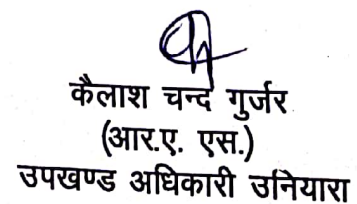 कैलाश चन्द गुर्जर
(आर.ए. एस.)
उपखण्ड अधिकारी उनियारा